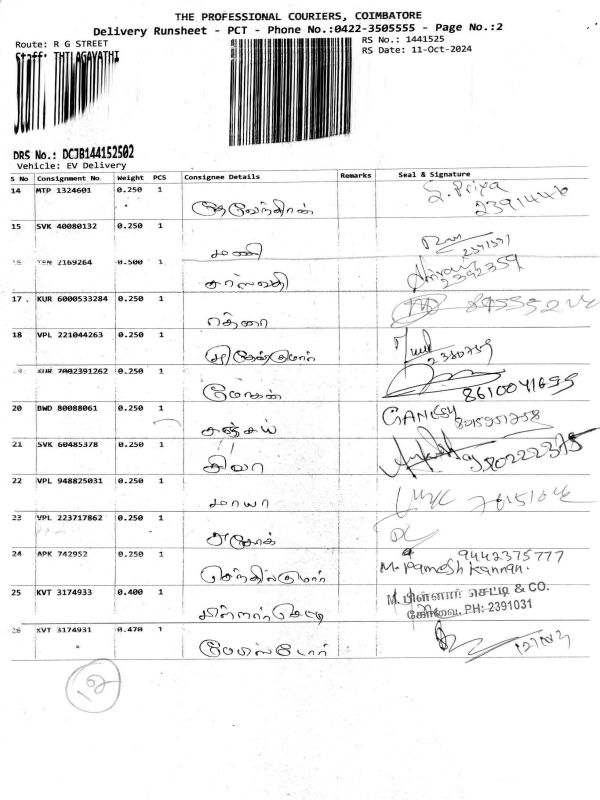 THE PROFESSIONAL COURIERS, COIMBATORE
Delivery Runsheet - PCT - Phone No.:0422-3505555 - Page No.:2
Route: R G STREET RS No.: 1441525
Staff: THILAGAVATHI RS Date: 11-Oct-2024
DRS No.: DCJB144152502
Vehicle: EV Delivery
S No Consignment No Weight PCS Consignee Details Remarks Seal & Signature
14 MTP 1324601 0.250 1 S. Priya
தேவேந்திரன் 2391446
15 SVK 40080132 0.250 1
மணி
16 2169264 0.500 1
சரஸ்வதி 2392359
17 KUR 6000533284 0.250 1
ரத்னா
18 VPL 221044263 0.250 1
2380759
19 KUR 7002391262 0.250 1
மோகன் 8610041655
20 BWD 80088061 0.250 1 GANESH
சஞ்சய்
21 SVK 60485378 0.250 1
சிவா
22 VPL 948825031 0.250 1
மாயா
23 VPL 223717862 0.250 1
அசோக்
24 APK 742952 0.250 1 9442375777
செந்தில்குமார் M. Ramesh Kannan.
25 KVT 3174933 0.400 1 M. பிள்ளார் செட்டி & CO.
பிள்ளார் செட்டி கோவை. PH: 2391031
26 KVT 3174931 0.470 1